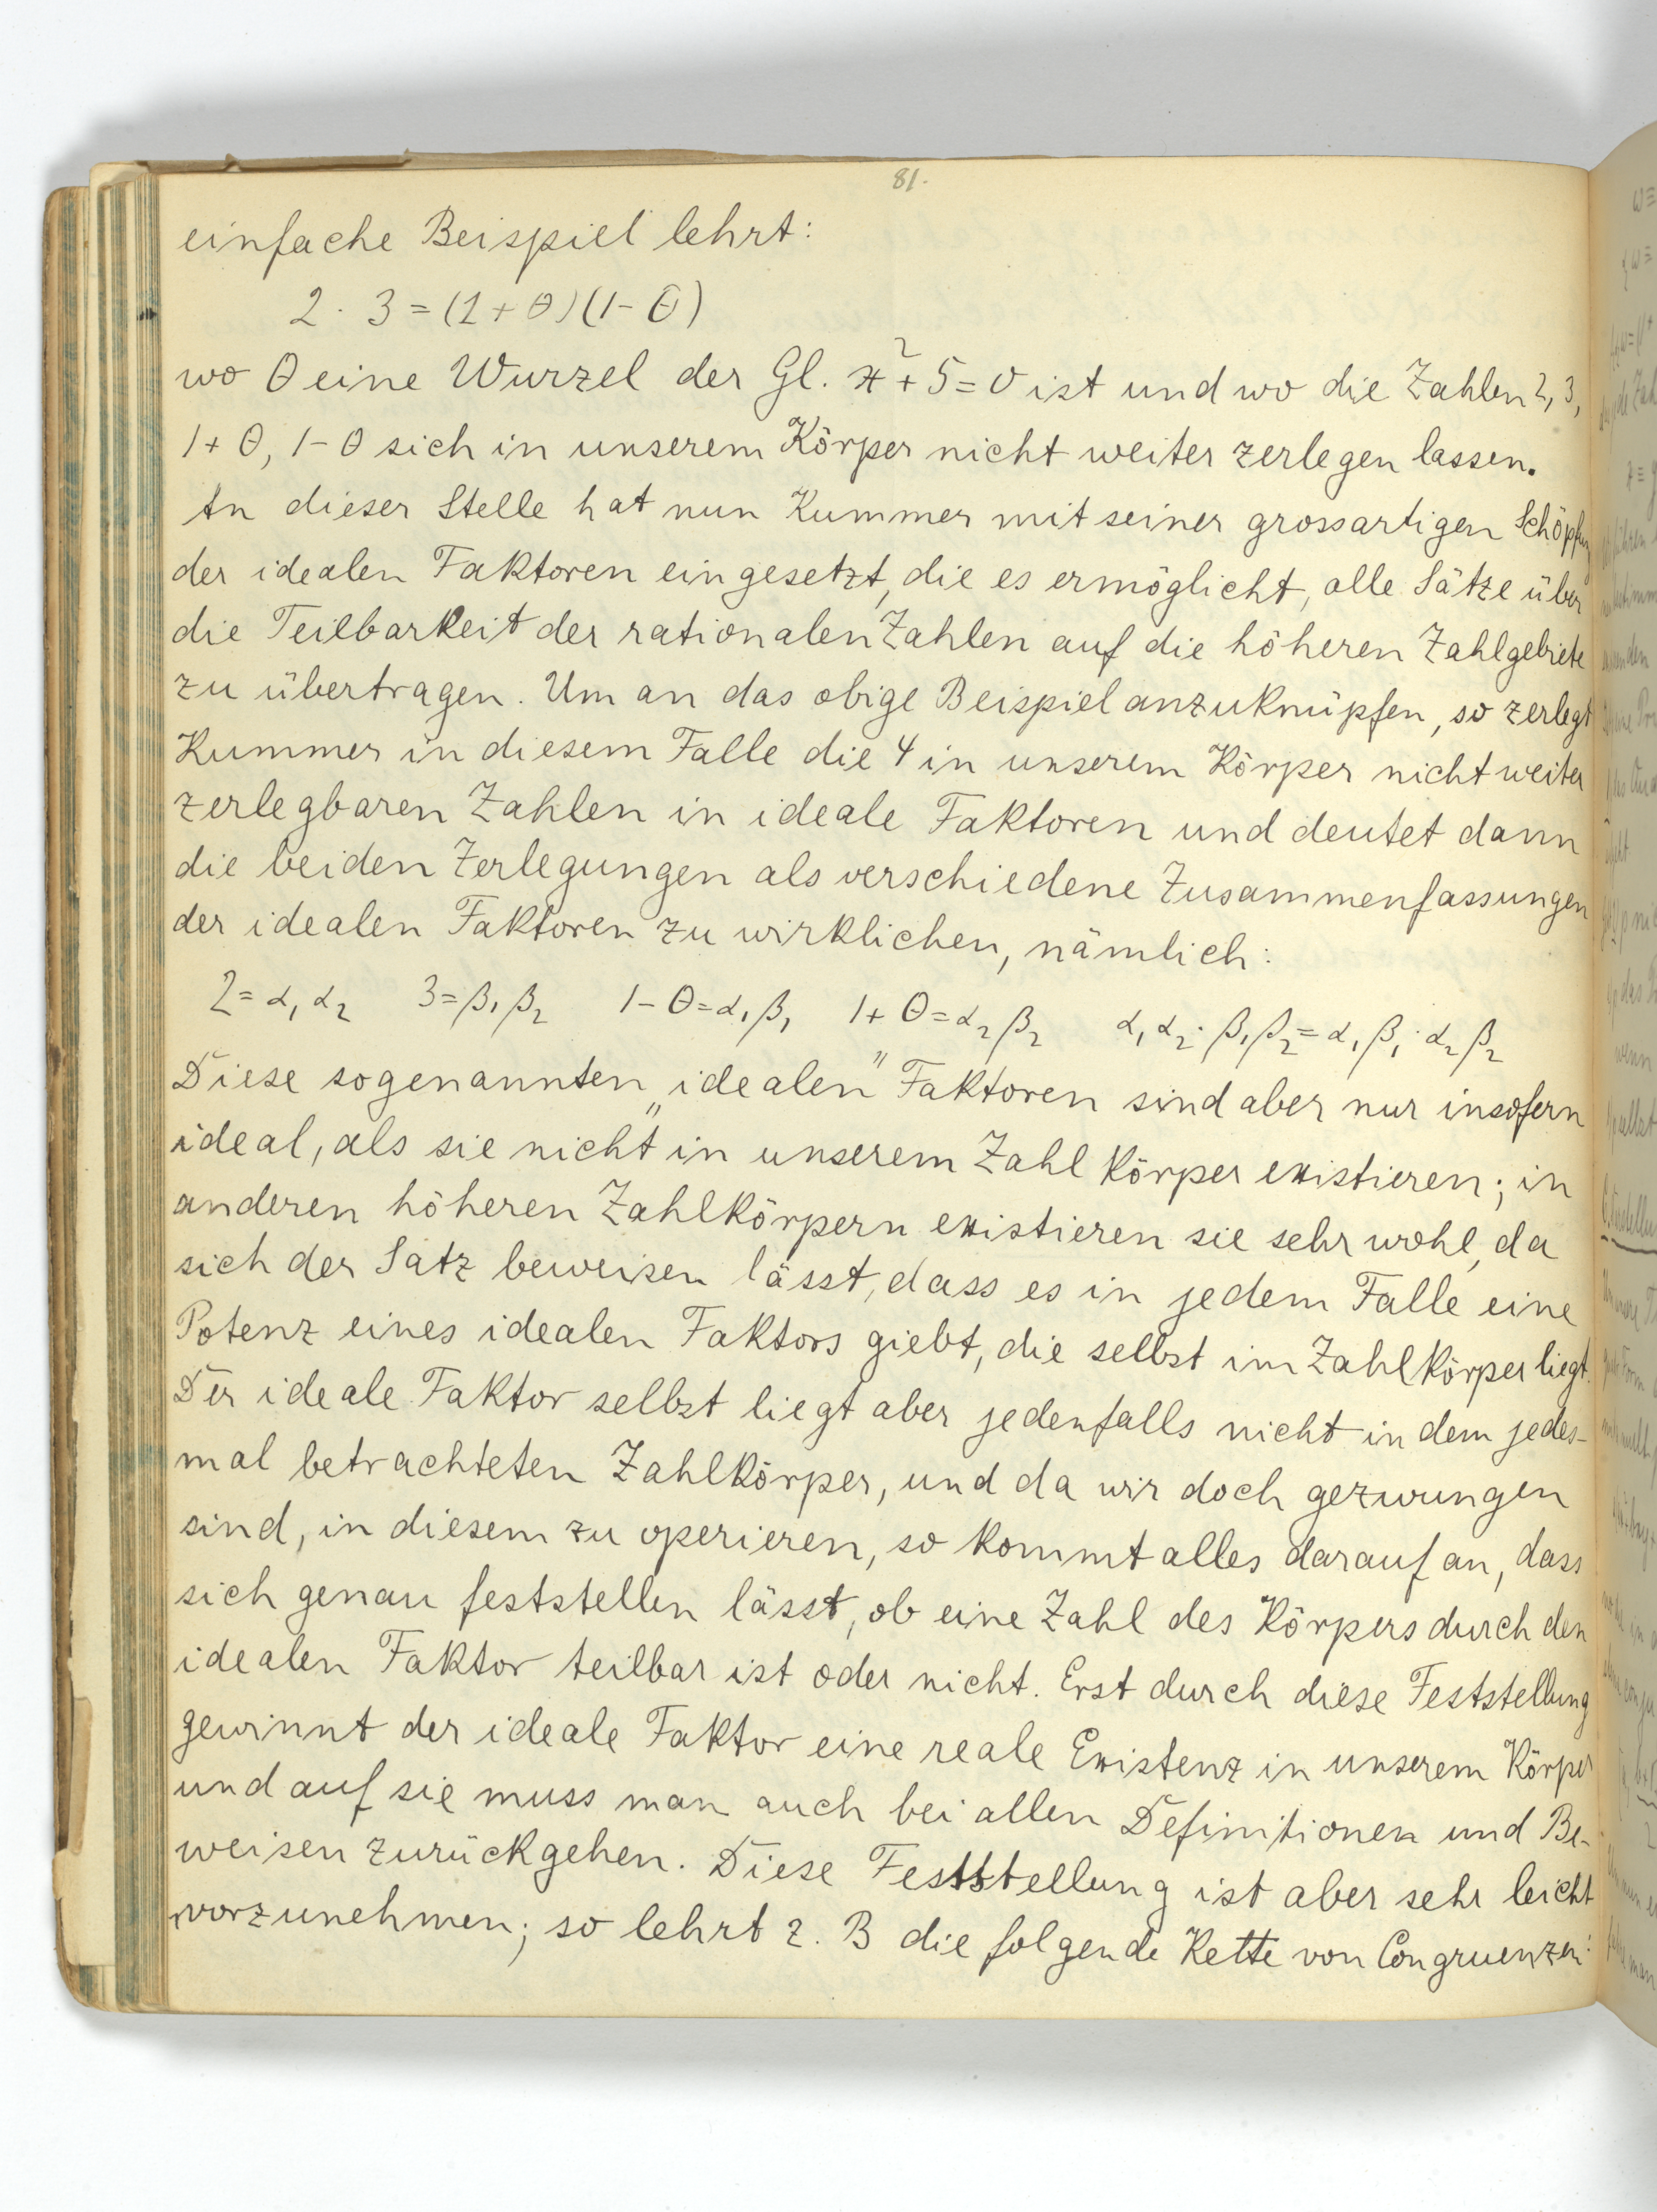 81.
einfache Beispiel lehrt:
2 · 3 = (1 + θ)(1 - θ)
wo θ eine Wurzel der Gl. x² + 5 = 0 ist und wo die Zahlen 2, 3,
1 + θ, 1 - θ sich in unserem Körper nicht weiter zerlegen lassen.
An dieser Stelle hat nun Kummer mit seiner grossartigen Schöpfung
der idealen Faktoren eingesetzt, die es ermöglicht, alle Sätze über
die Teilbarkeit der rationalen Zahlen auf die höheren Zahlgebiete
zu übertragen. Um an das obige Beispiel anzuknüpfen, so zerlegt
Kummer in diesem Falle die 4 in unserem Körper nicht weiter
zerlegbaren Zahlen in ideale Faktoren und deutet dann
die beiden Zerlegungen als verschiedene Zusammenfassungen
der idealen Faktoren zu wirklichen, nämlich:
2 = α₁ α₂ 3 = β₁ β₂ 1 - θ = α₁ β₁ 1 + θ = α₂ β₂ α₁ α₂ · β₁ β₂ = α₁ β₁ · α₂ β₂
Diese sogenannten „idealen" Faktoren sind aber nur insofern
ideal, als sie nicht in unserem Zahlkörper existieren; in
anderen höheren Zahlkörpern existieren sie sehr wohl, da
sich der Satz beweisen lässt, dass es in jedem Falle eine
Potenz eines idealen Faktors giebt, die selbst im Zahlkörper liegt.
Der ideale Faktor selbst liegt aber jedenfalls nicht in dem jedes-
mal betrachteten Zahlkörper, und da wir doch gezwungen
sind, in diesem zu operieren, so kommt alles darauf an, dass
sich genau feststellen lässt, ob eine Zahl des Körpers durch den
idealen Faktor teilbar ist oder nicht. Erst durch diese Feststellung
gewinnt der ideale Faktor eine reale Existenz in unserem Körper
und auf sie muss man auch bei allen Definitionen und Be-
weisen zurückgehen. Diese Feststellung ist aber sehr leicht
vorzunehmen; so lehrt z. B die folgende Kette von Congruenzen: